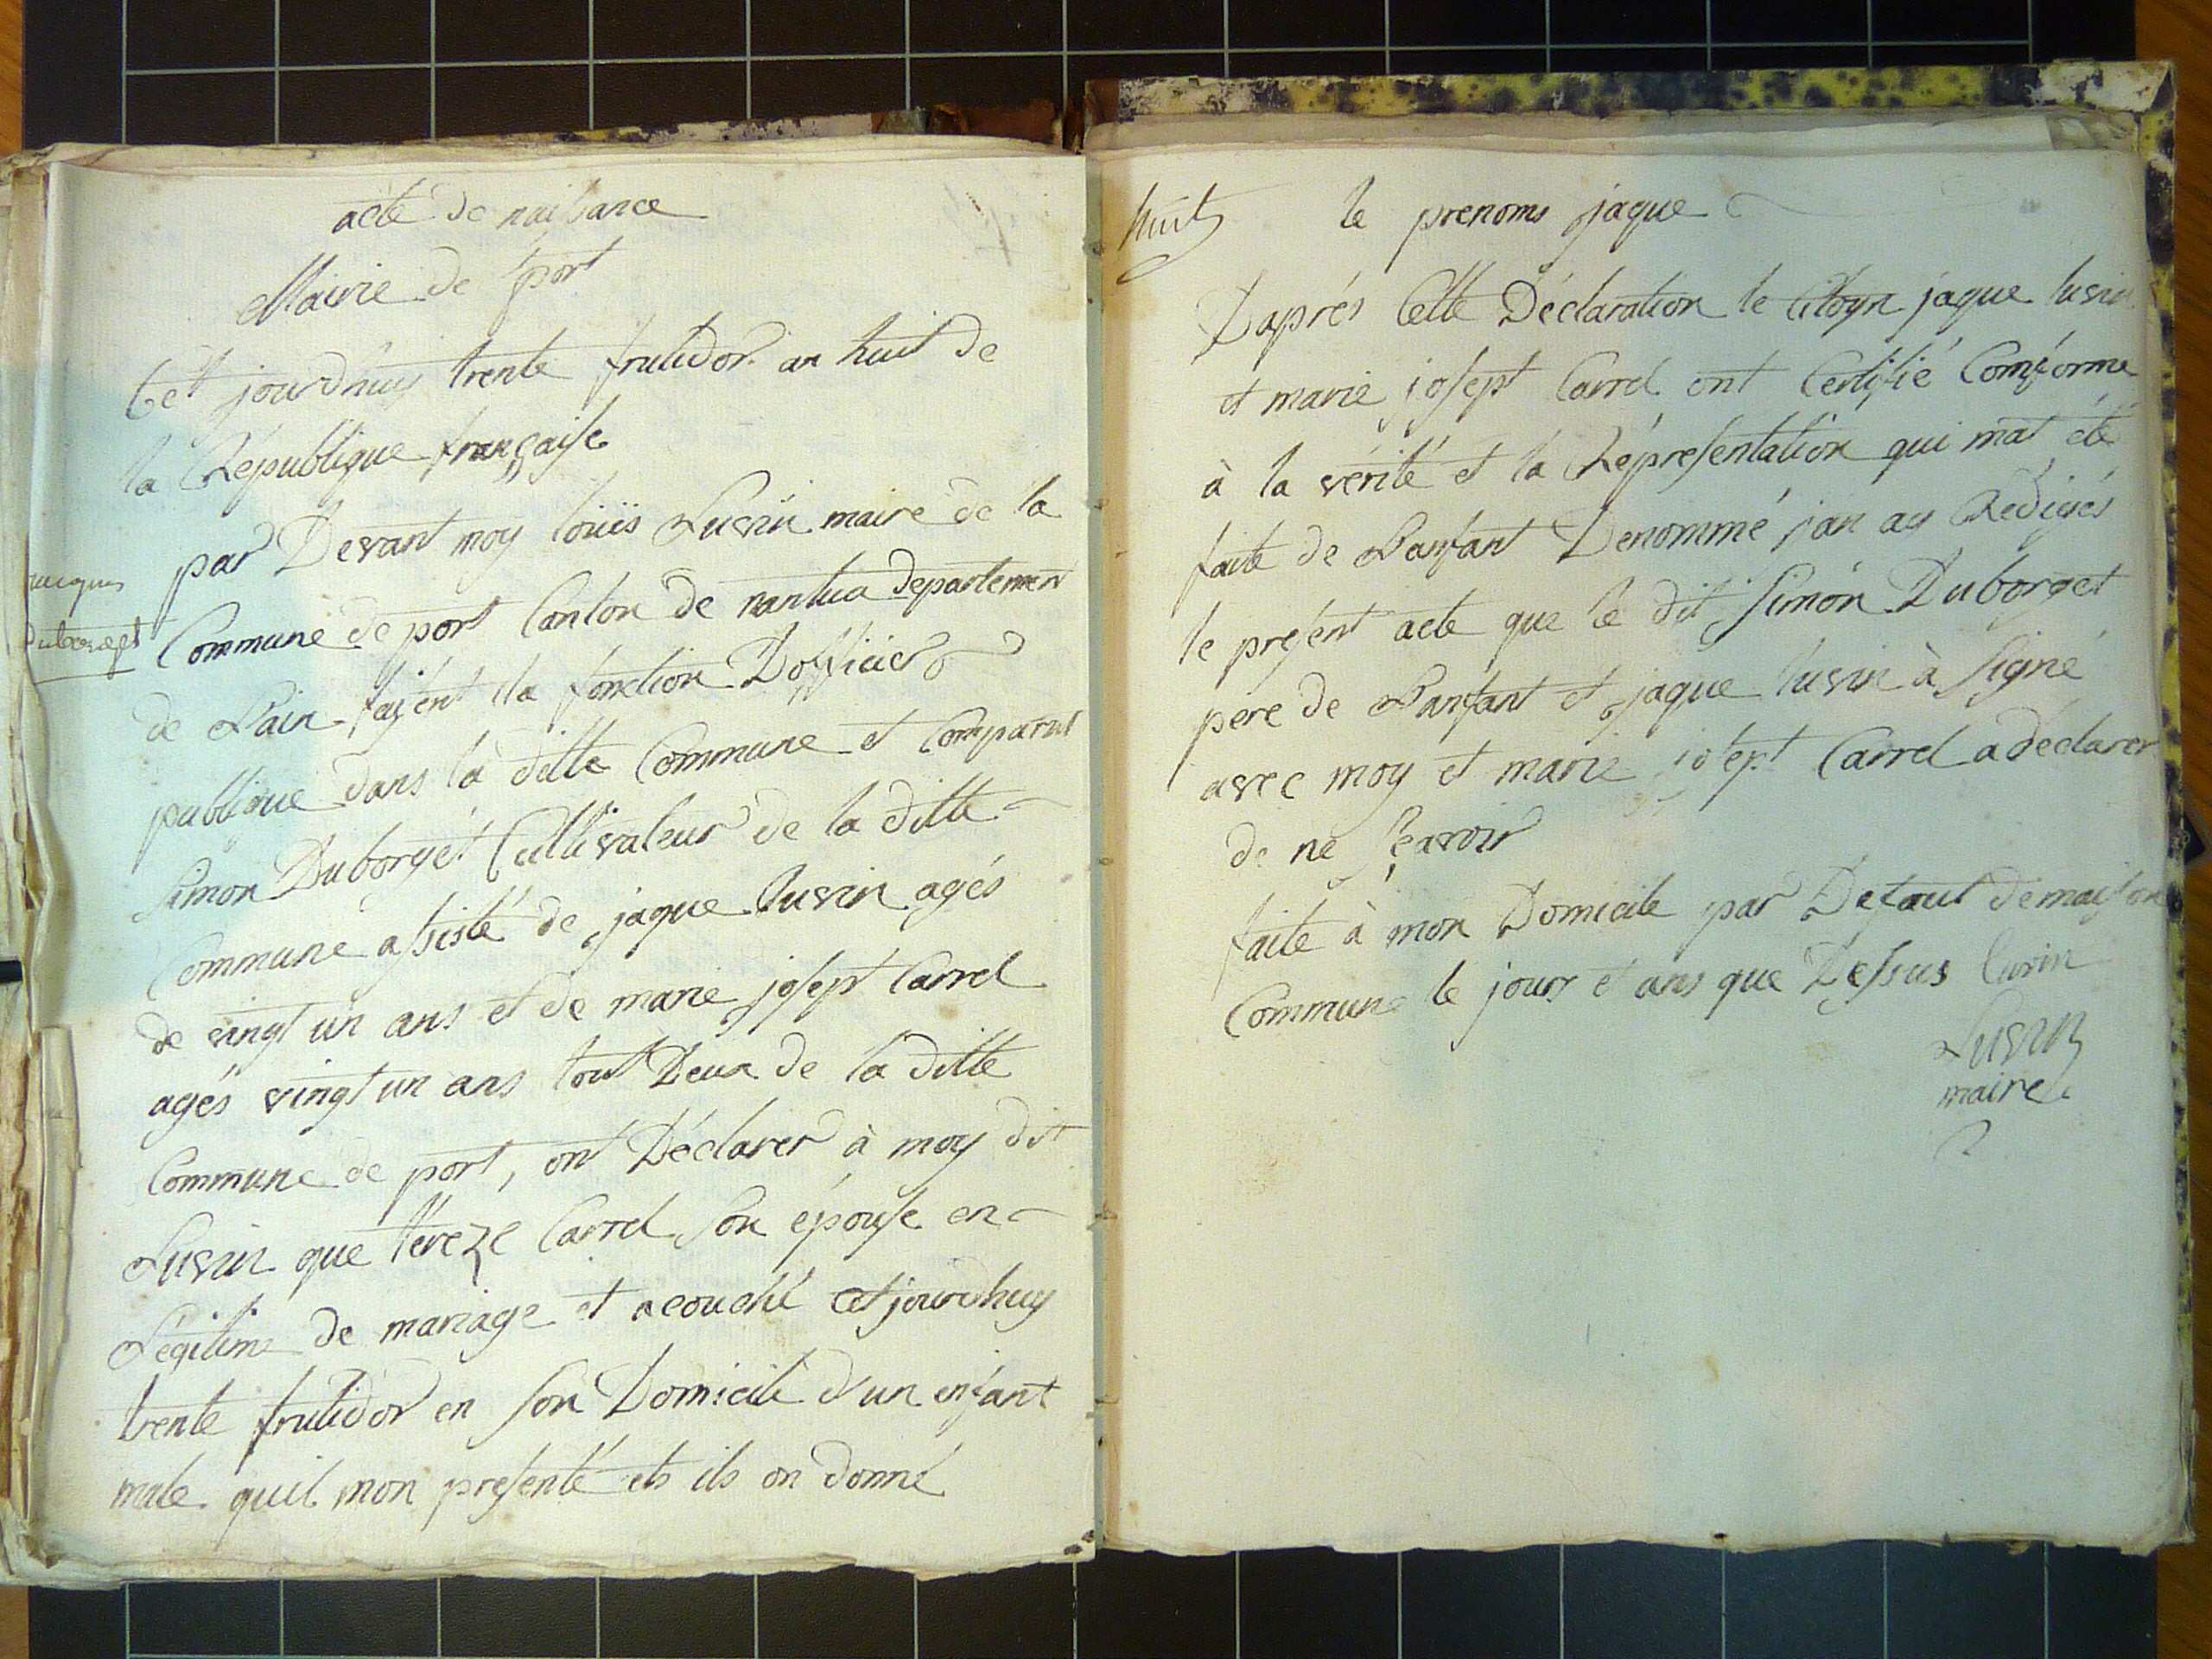 acte de naissance
Mairie de port
Cet jourdhuy trente frutidor an huit de
la République française
par Devant moy loüis Luvin maire de la
Jacques
Duborget
Commune de port Canton de nantua departemen
de Lain faisent la fonction Dofficier
publique dans la ditte Commune et Comparut
Simon Duborget Cultivateur de la ditte
Commune assisté de jaque Luvin agés
de vingt un ans et de marie josept Carrel
agés vingt un ans tout Deux de la ditte
Commune de port, ont Déclarer à moy dit
Luvin que téreze Carrel son épouse en
Légitime de mariage et acouché cet jourdhuy
trente frutidor en son Domicile d'un enfant
male quil mon presenté et ils on donné
huit
le prenoms jaque
Daprés Cette Déclaration le Citoyn jaque luvin
et marie josept Carrel ont Certifié Comforme
à la vérité et la Répresentation qui mat été
faite de Lanfant Denommé jan ay Redigés
le present acte que le dit Simon Duborget
pere de Lanfant et jaque luvin à Signé
avec moy et marie josept Carrel a déclarer
de ne sçavoir
faite à mon Domicile par Defaut de maison
Commune le jour et ans que Dessus luvin
Luvin
maire